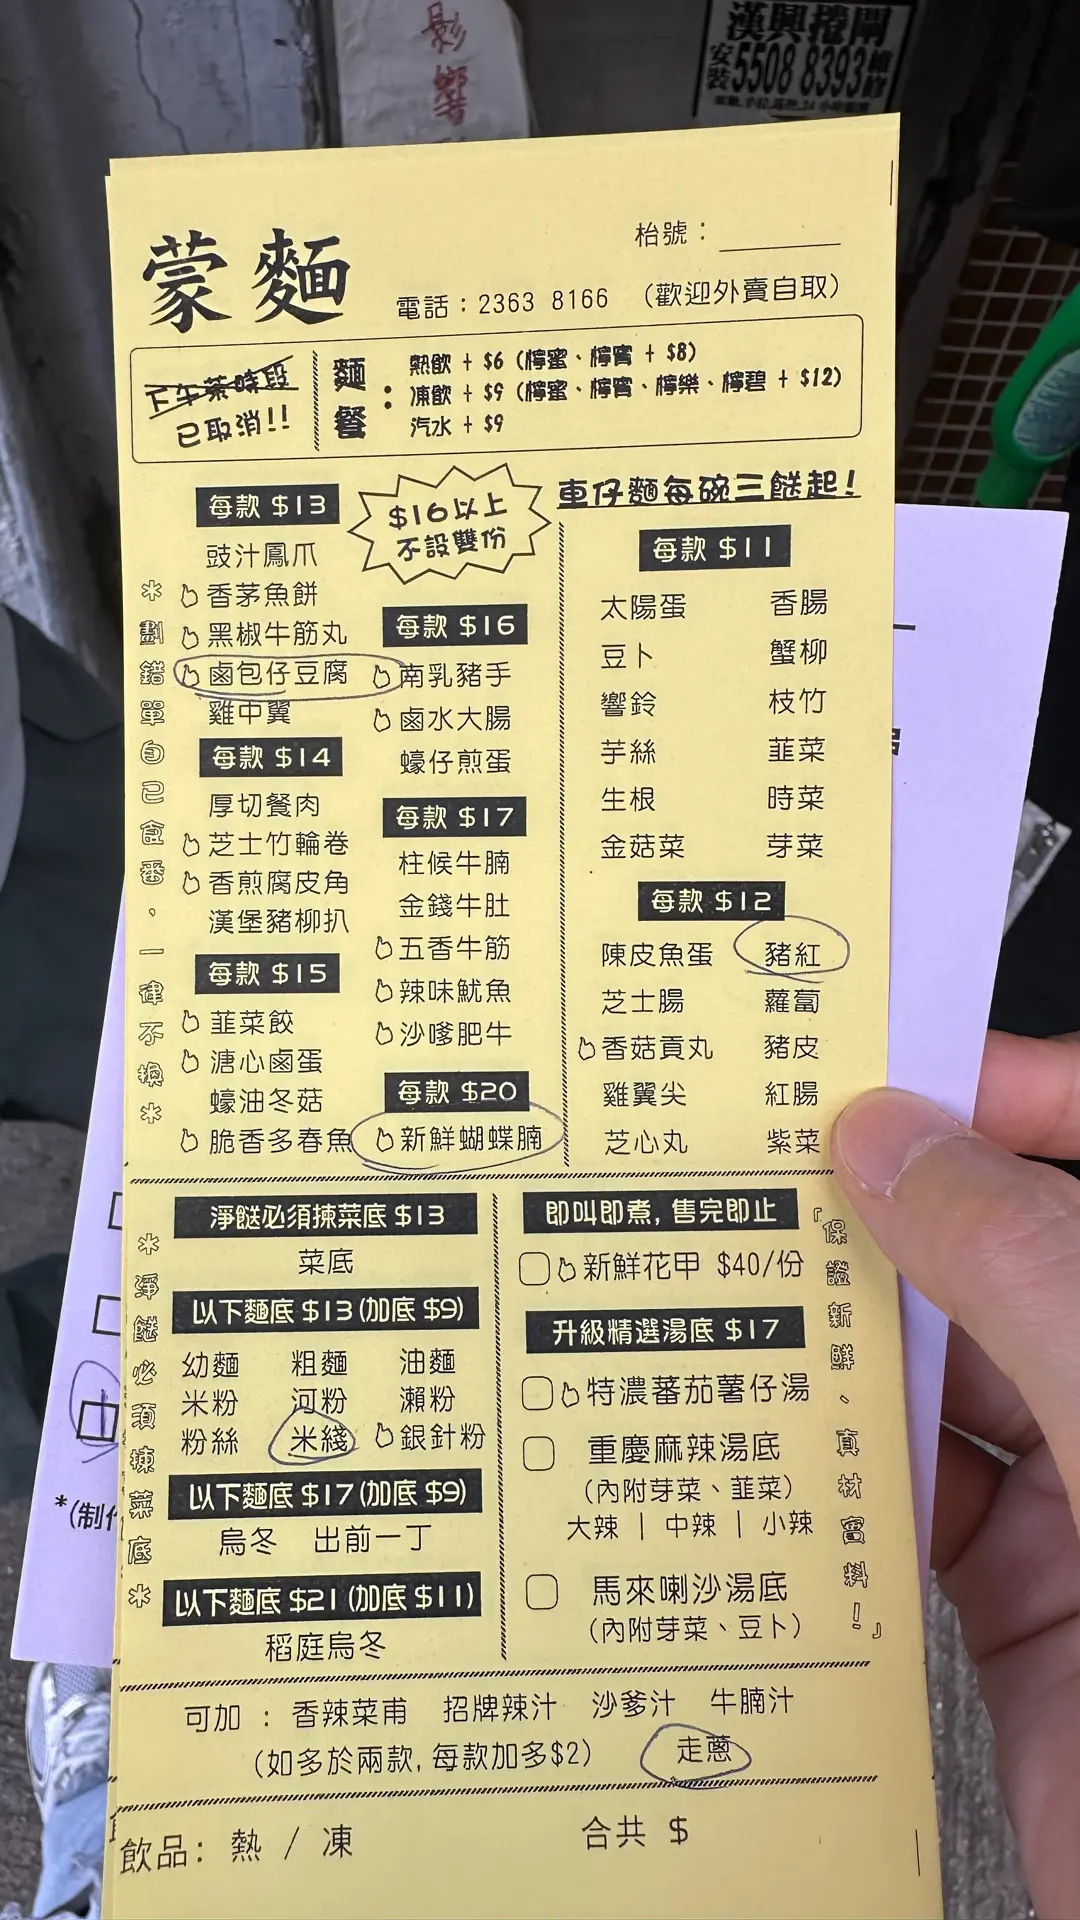 影響
漢興捲閘
安裝 5508 8393 維修
蒙麵
枱號：
電話：2363 8166 （歡迎外賣自取）
下午茶時段
已取消!!
麵餐：
熱飲 + $6 (檸蜜、檸賓 + $8)
凍飲 + $9 (檸蜜、檸賓、檸樂、檸碧 + $12)
汽水 + $9
＊劃錯單自己食番，一律不換＊
每款 $13
豉汁鳳爪
香茅魚餅
黑椒牛筋丸
鹵包仔豆腐
雞中翼
每款 $14
厚切餐肉
芝士竹輪卷
香煎腐皮角
漢堡豬柳扒
每款 $15
韮菜餃
溏心鹵蛋
蠔油冬菇
脆香多春魚
$16以上
不設雙份
每款 $16
南乳豬手
鹵水大腸
蠔仔煎蛋
每款 $17
柱候牛腩
金錢牛肚
五香牛筋
辣味魷魚
沙嗲肥牛
每款 $20
新鮮蝴蝶腩
車仔麵每碗三餸起!
每款 $11
太陽蛋 香腸
豆卜 蟹柳
響鈴 枝竹
芋絲 韮菜
生根 時菜
金菇菜 芽菜
每款 $12
陳皮魚蛋 豬紅
芝士腸 蘿蔔
香菇貢丸 豬皮
雞翼尖 紅腸
芝心丸 紫菜
＊淨餸必須揀菜底＊
淨餸必須揀菜底 $13
菜底
以下麵底 $13 (加底 $9)
幼麵 粗麵 油麵
米粉 河粉 瀨粉
粉絲 米綫 銀針粉
以下麵底 $17 (加底 $9)
烏冬 出前一丁
以下麵底 $21 (加底 $11)
稻庭烏冬
即叫即煮, 售完即止
新鮮花甲 $40/份
升級精選湯底 $17
特濃蕃茄薯仔湯
重慶麻辣湯底
(內附芽菜、韮菜)
大辣 | 中辣 | 小辣
馬來喇沙湯底
(內附芽菜、豆卜)
『保證新鮮、真材實料！』
可加 ： 香辣菜甫 招牌辣汁 沙爹汁 牛腩汁
(如多於兩款, 每款加多$2) 走蔥
飲品: 熱 / 凍 合共 $
*(制作